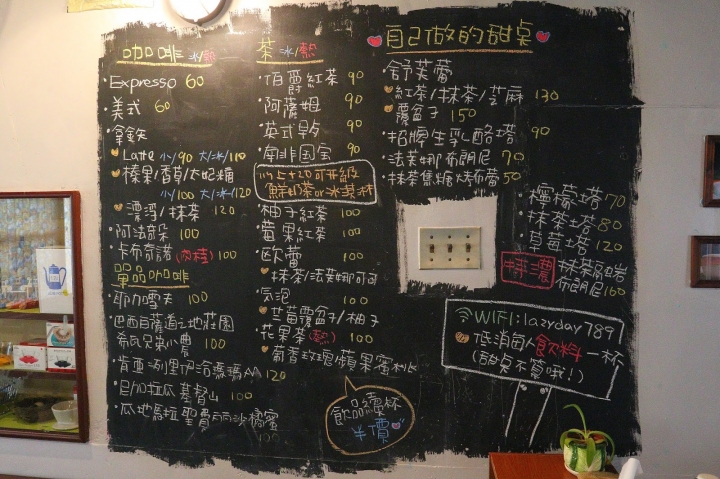 咖啡 冰/熱
Expresso 60
美式 60
拿鐵
Latte 小/90 大/冰/110
榛果/香草/太妃糖
小/100 大/冰/120
漂浮/抹茶 120
阿法奇朵 100
卡布奇諾(肉桂) 100
單品咖啡
耶加雪夫 100
巴西 之地莊園
希瓦兄弟小農 100
肯亞 AA 120
尼加拉瓜 基督山 100
瓜地馬拉 聖費 蜜
100
茶 冰/熱
伯爵紅茶 90
阿薩姆 90
英式早午 90
南非国宝 90
以上+20可升級
鮮奶茶or冰淇淋
柚子紅茶 100
莓果紅茶 100
歐蕾 100
抹茶/法芙娜可可
気泡 100
藍莓覆盆子/柚子
花果茶(熱) 100
菊香玫瑰/蘋果蜜桃
飲品續杯
半價
自己做的甜点
舒芙蕾
紅茶/抹茶/芝麻 130
覆盆子 150
招牌生乳酪塔 90
法芙娜布朗尼 70
抹茶焦糖烤布蕾 50
檸檬塔 70
抹茶塔 80
草莓塔 120
特濃 抹茶 布朗尼 160
WIFI:lazyday789
低消每人飲料一杯
(甜点不算哦!)